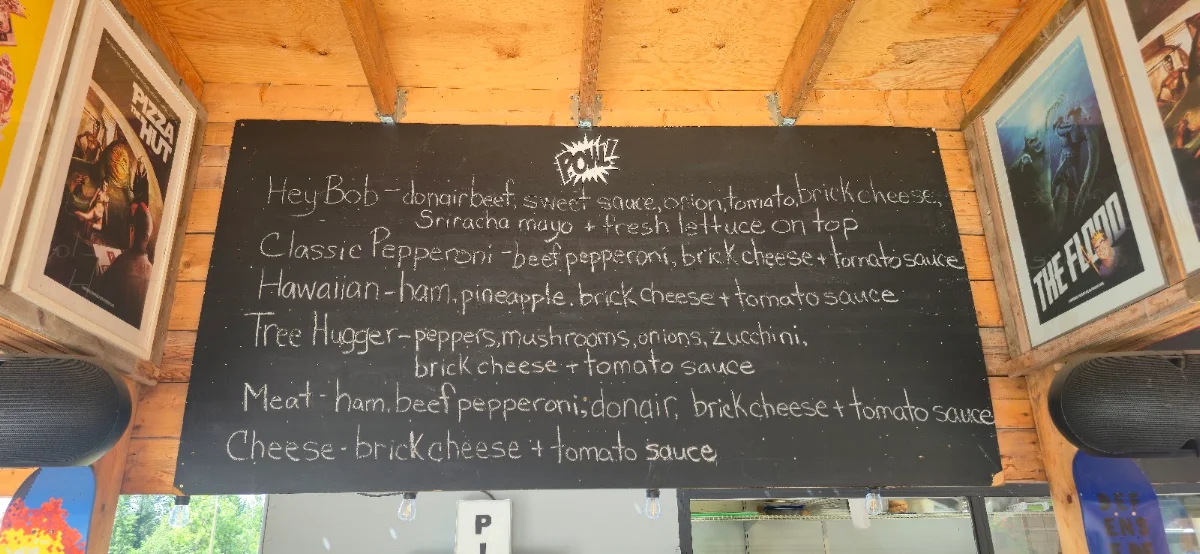 PIZZA
THE HUT
POW!
Hey Bob - donair beef, sweet sauce, onion, tomato, brick cheese,
Sriracha mayo + fresh lettuce on top
Classic Pepperoni - beef pepperoni, brick cheese + tomato sauce
Hawaiian - ham, pineapple, brick cheese + tomato sauce
Tree Hugger - peppers, mushrooms, onions, zucchini,
brick cheese + tomato sauce
Meat - ham, beef pepperoni, donair, brick cheese + tomato sauce
Cheese - brick cheese + tomato sauce
THE FLOOD
P